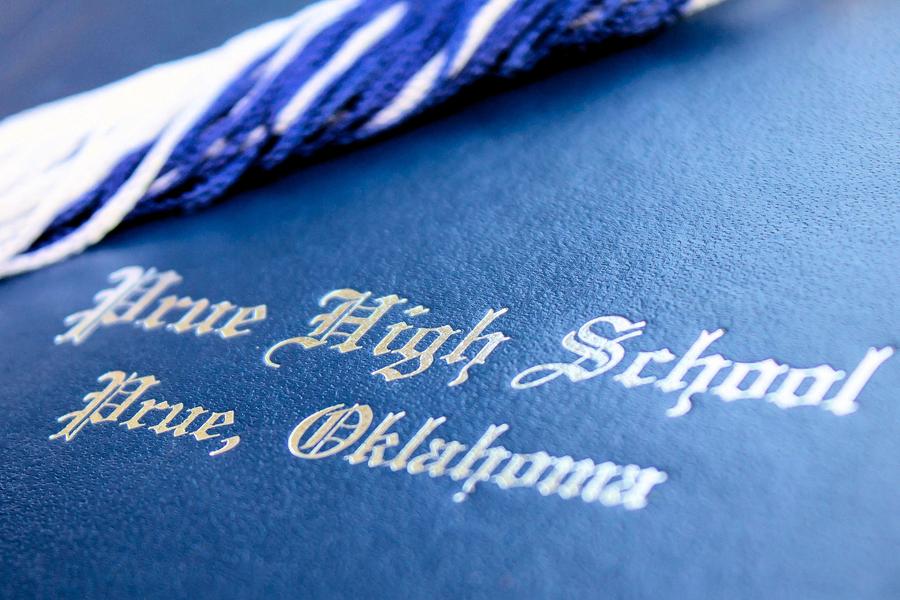 Prue High School
Prue, Oklahoma